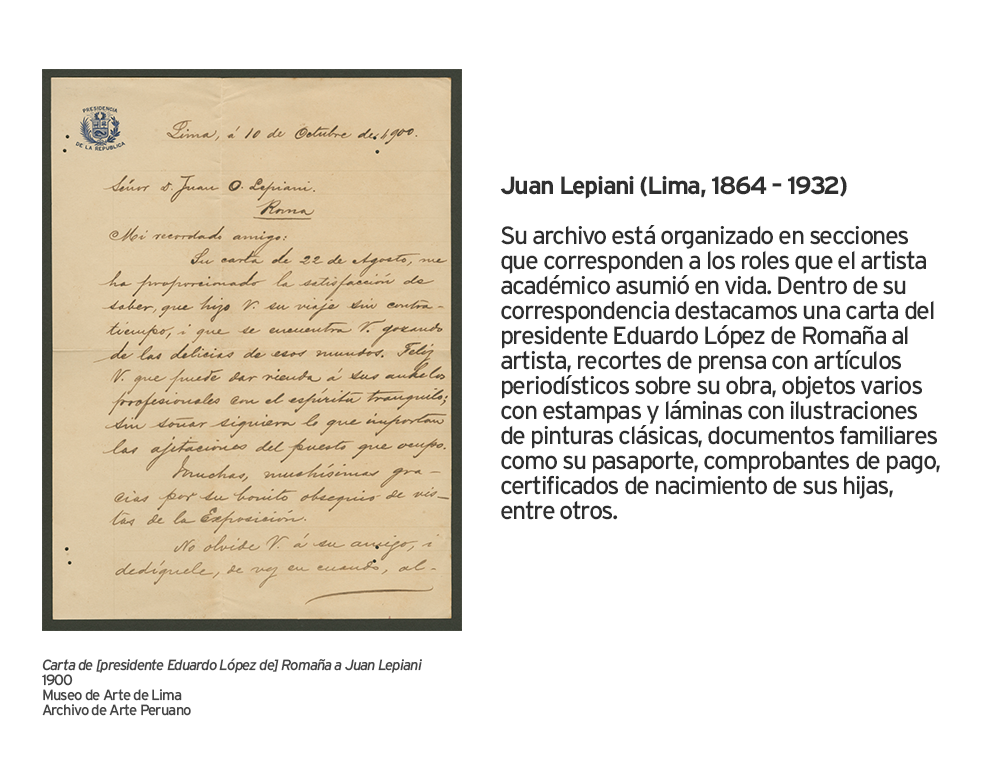 PRESIDENCIA
DE LA REPUBLICA
Lima, á 10 de Octubre de 1900.
Señor D. Juan O. Lepiani.
Roma
Mi recordado amigo:
Su carta de 22 de Agosto, me
ha proporcionado la satisfacción de
saber, que hizo V. su viaje sin contra-
tiempo, i que se encuentra V. gozando
de las delicias de esos mundos. Feliz
V. que puede dar rienda á sus anhelos
profesionales con el espíritu tranquilo;
sin soñar siquiera lo que importan
las ajitaciones del puesto que ocupo.
Muchas, muchísimas gra-
cias por su bonito obsequio de vis-
tas de la Exposición.
No olvide V. á su amigo, i
dedíquele, de vez en cuando, al-
Carta de [presidente Eduardo López de] Romaña a Juan Lepiani
1900
Museo de Arte de Lima
Archivo de Arte Peruano
Juan Lepiani (Lima, 1864 - 1932)
Su archivo está organizado en secciones
que corresponden a los roles que el artista
académico asumió en vida. Dentro de su
correspondencia destacamos una carta del
presidente Eduardo López de Romaña al
artista, recortes de prensa con artículos
periodísticos sobre su obra, objetos varios
con estampas y láminas con ilustraciones
de pinturas clásicas, documentos familiares
como su pasaporte, comprobantes de pago,
certificados de nacimiento de sus hijas,
entre otros.